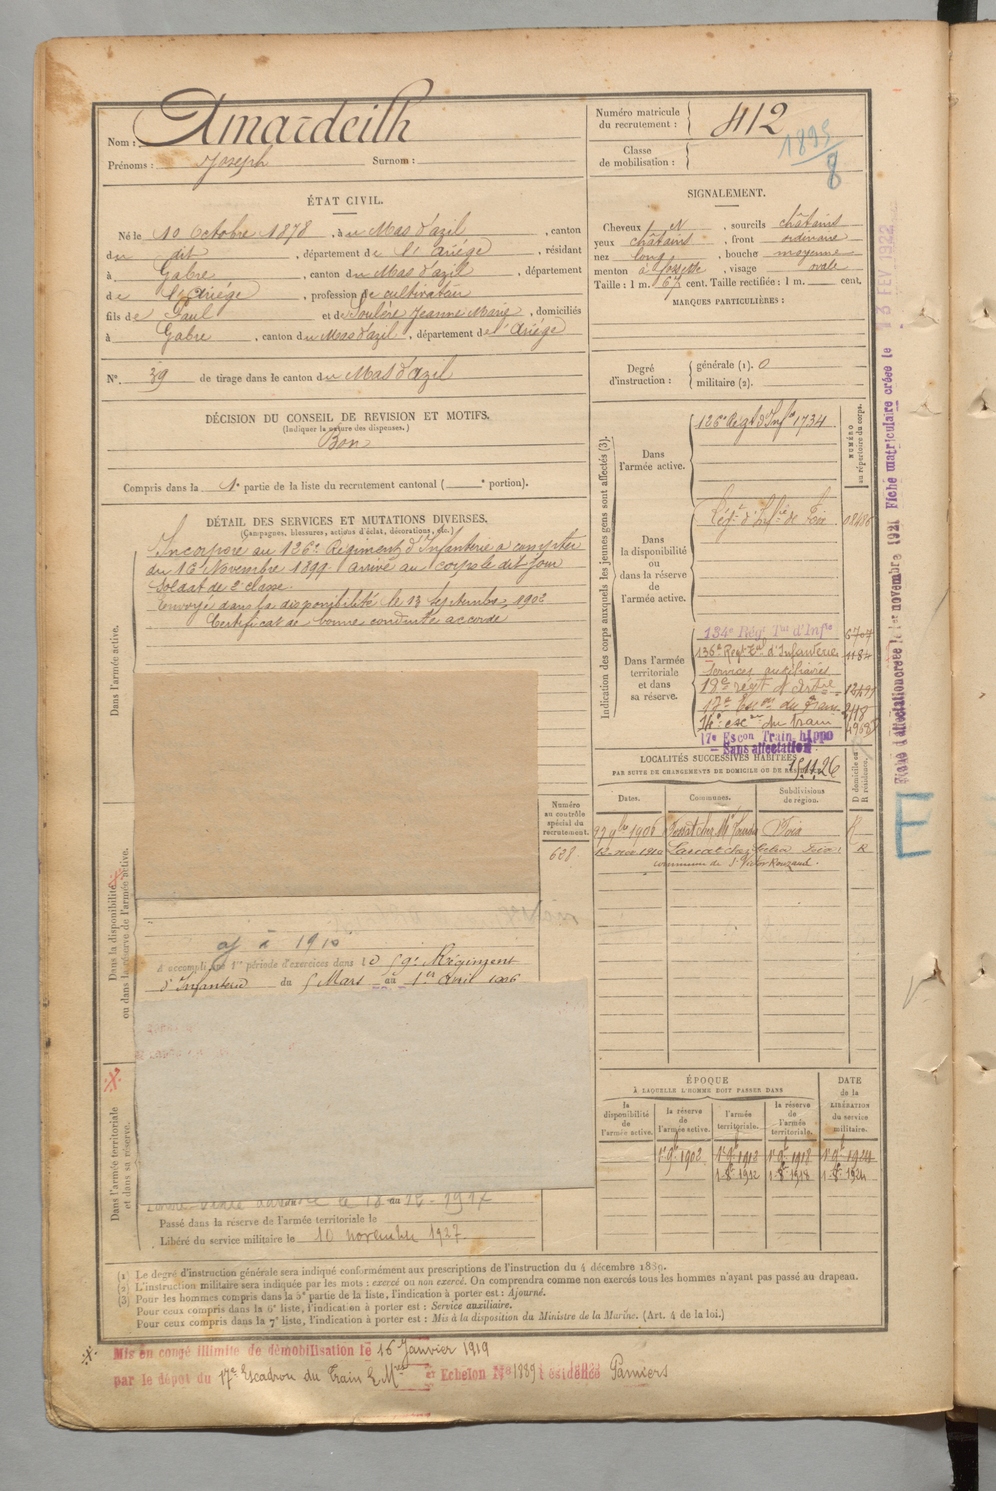 Nom : Amardeilh
Prénoms : Joseph Surnom :
Numéro matricule du recrutement : 412
Classe de mobilisation :
1895/8
ÉTAT CIVIL.
Né le 10 Octobre 1878, à u Mas d'azil, canton
du dit, département de l'Ariége, résidant
à Gabre, canton du Mas d'azil, département
de l'Ariége, profession de cultivateur
fils de Paul et de Soulère Jeanne Marie, domiciliés
à Gabre, canton du Mas d'azil, département de l'Ariége
N°. 39 de tirage dans le canton du Mas d'azil
SIGNALEMENT.
Cheveux N, sourcils châtains
yeux châtains, front ordinaire
nez long, bouche moyenne
menton à fossette, visage ovale
Taille : 1 m. 67 cent. Taille rectifiée : 1 m. cent.
MARQUES PARTICULIÈRES :
Degré d'instruction : générale (1). 0
militaire (2).
DÉCISION DU CONSEIL DE REVISION ET MOTIFS.
(Indiquer la nature des dispenses.)
Bon
Compris dans la 1e partie de la liste du recrutement cantonal ( e portion).
DÉTAIL DES SERVICES ET MUTATIONS DIVERSES.
(Campagnes, blessures, actions d'éclat, décorations, etc.)
Dans l'armée active.
Incorporé au 126e Régiment d'Infanterie à compter
du 16 Novembre 1899 arrivé au corps le dit jour
Soldat de 2e classe
Envoyé dans la disponibilité le 13 Septembre 1902
Certificat de bonne conduite accordé
Dans la disponibilité ou dans la réserve de l'armée active.
Numéro au contrôle spécial du recrutement.
628
à 1910
a accompli une 1re période d'exercices dans le 59e Régiment
d'Infanterie du 5 Mars au 1er Avril 1906
Dans l'armée territoriale et dans sa réserve.
Passé dans la réserve de l'armée territoriale le
Libéré du service militaire le 10 novembre 1927
Indication des corps auxquels les jeunes gens sont affectés (3).
NUMÉRO au répertoire du corps.
Dans l'armée active.
126e Régt d'Infie 1734
Dans la disponibilité ou dans la réserve de l'armée active.
Régt d'Infie de Foix
Dans l'armée territoriale et dans sa réserve.
134e Rég Tal d'Infie
136e Regt Tal d'Infanterie 1184
Services auxiliaires
18e régt d'Artie
17e Esc on du Train
16e esc on du train
17e Escon Train hippo
Sans affectation
LOCALITÉS SUCCESSIVES HABITÉES
PAR SUITE DE CHANGEMENTS DE DOMICILE OU DE RÉSIDENCE.
15.11.26
Dates. Communes. Subdivisions de région. D domicile ou R résidence.
27 9bre 1906 Foix
1910 Lascat chez Foix R
commune de St Victor Rouzaud.
ÉPOQUE
À LAQUELLE L'HOMME DOIT PASSER DANS
la disponibilité de l'armée active. la réserve de l'armée active. l'armée territoriale. la réserve de l'armée territoriale.
DATE de la LIBÉRATION du service militaire.
1er 9bre 1902 1er 9bre 1912 1er 9bre 1918 1er 9bre 1924
1 8bre 1912 1 8bre 1918 1 8bre 1924
Fiche matriculaire créée le 13 FEV. 1922
E
(1) Le degré d'instruction générale sera indiqué conformément aux prescriptions de l'instruction du 4 décembre 1889.
(2) L'instruction militaire sera indiquée par les mots : exercé ou non exercé. On comprendra comme non exercés tous les hommes n'ayant pas passé au drapeau.
(3) Pour les hommes compris dans la 5e partie de la liste, l'indication à porter est : Ajourné.
Pour ceux compris dans la 6e liste, l'indication à porter est : Service auxiliaire.
Pour ceux compris dans la 7e liste, l'indication à porter est : Mis à la disposition du Ministre de la Marine. (Art. 4 de la loi.)
Mis en congé illimité de démobilisation le 16 Janvier 1919
par le dépôt du 17e Escadron du Train Echelon N° 1889 résidence Pamiers